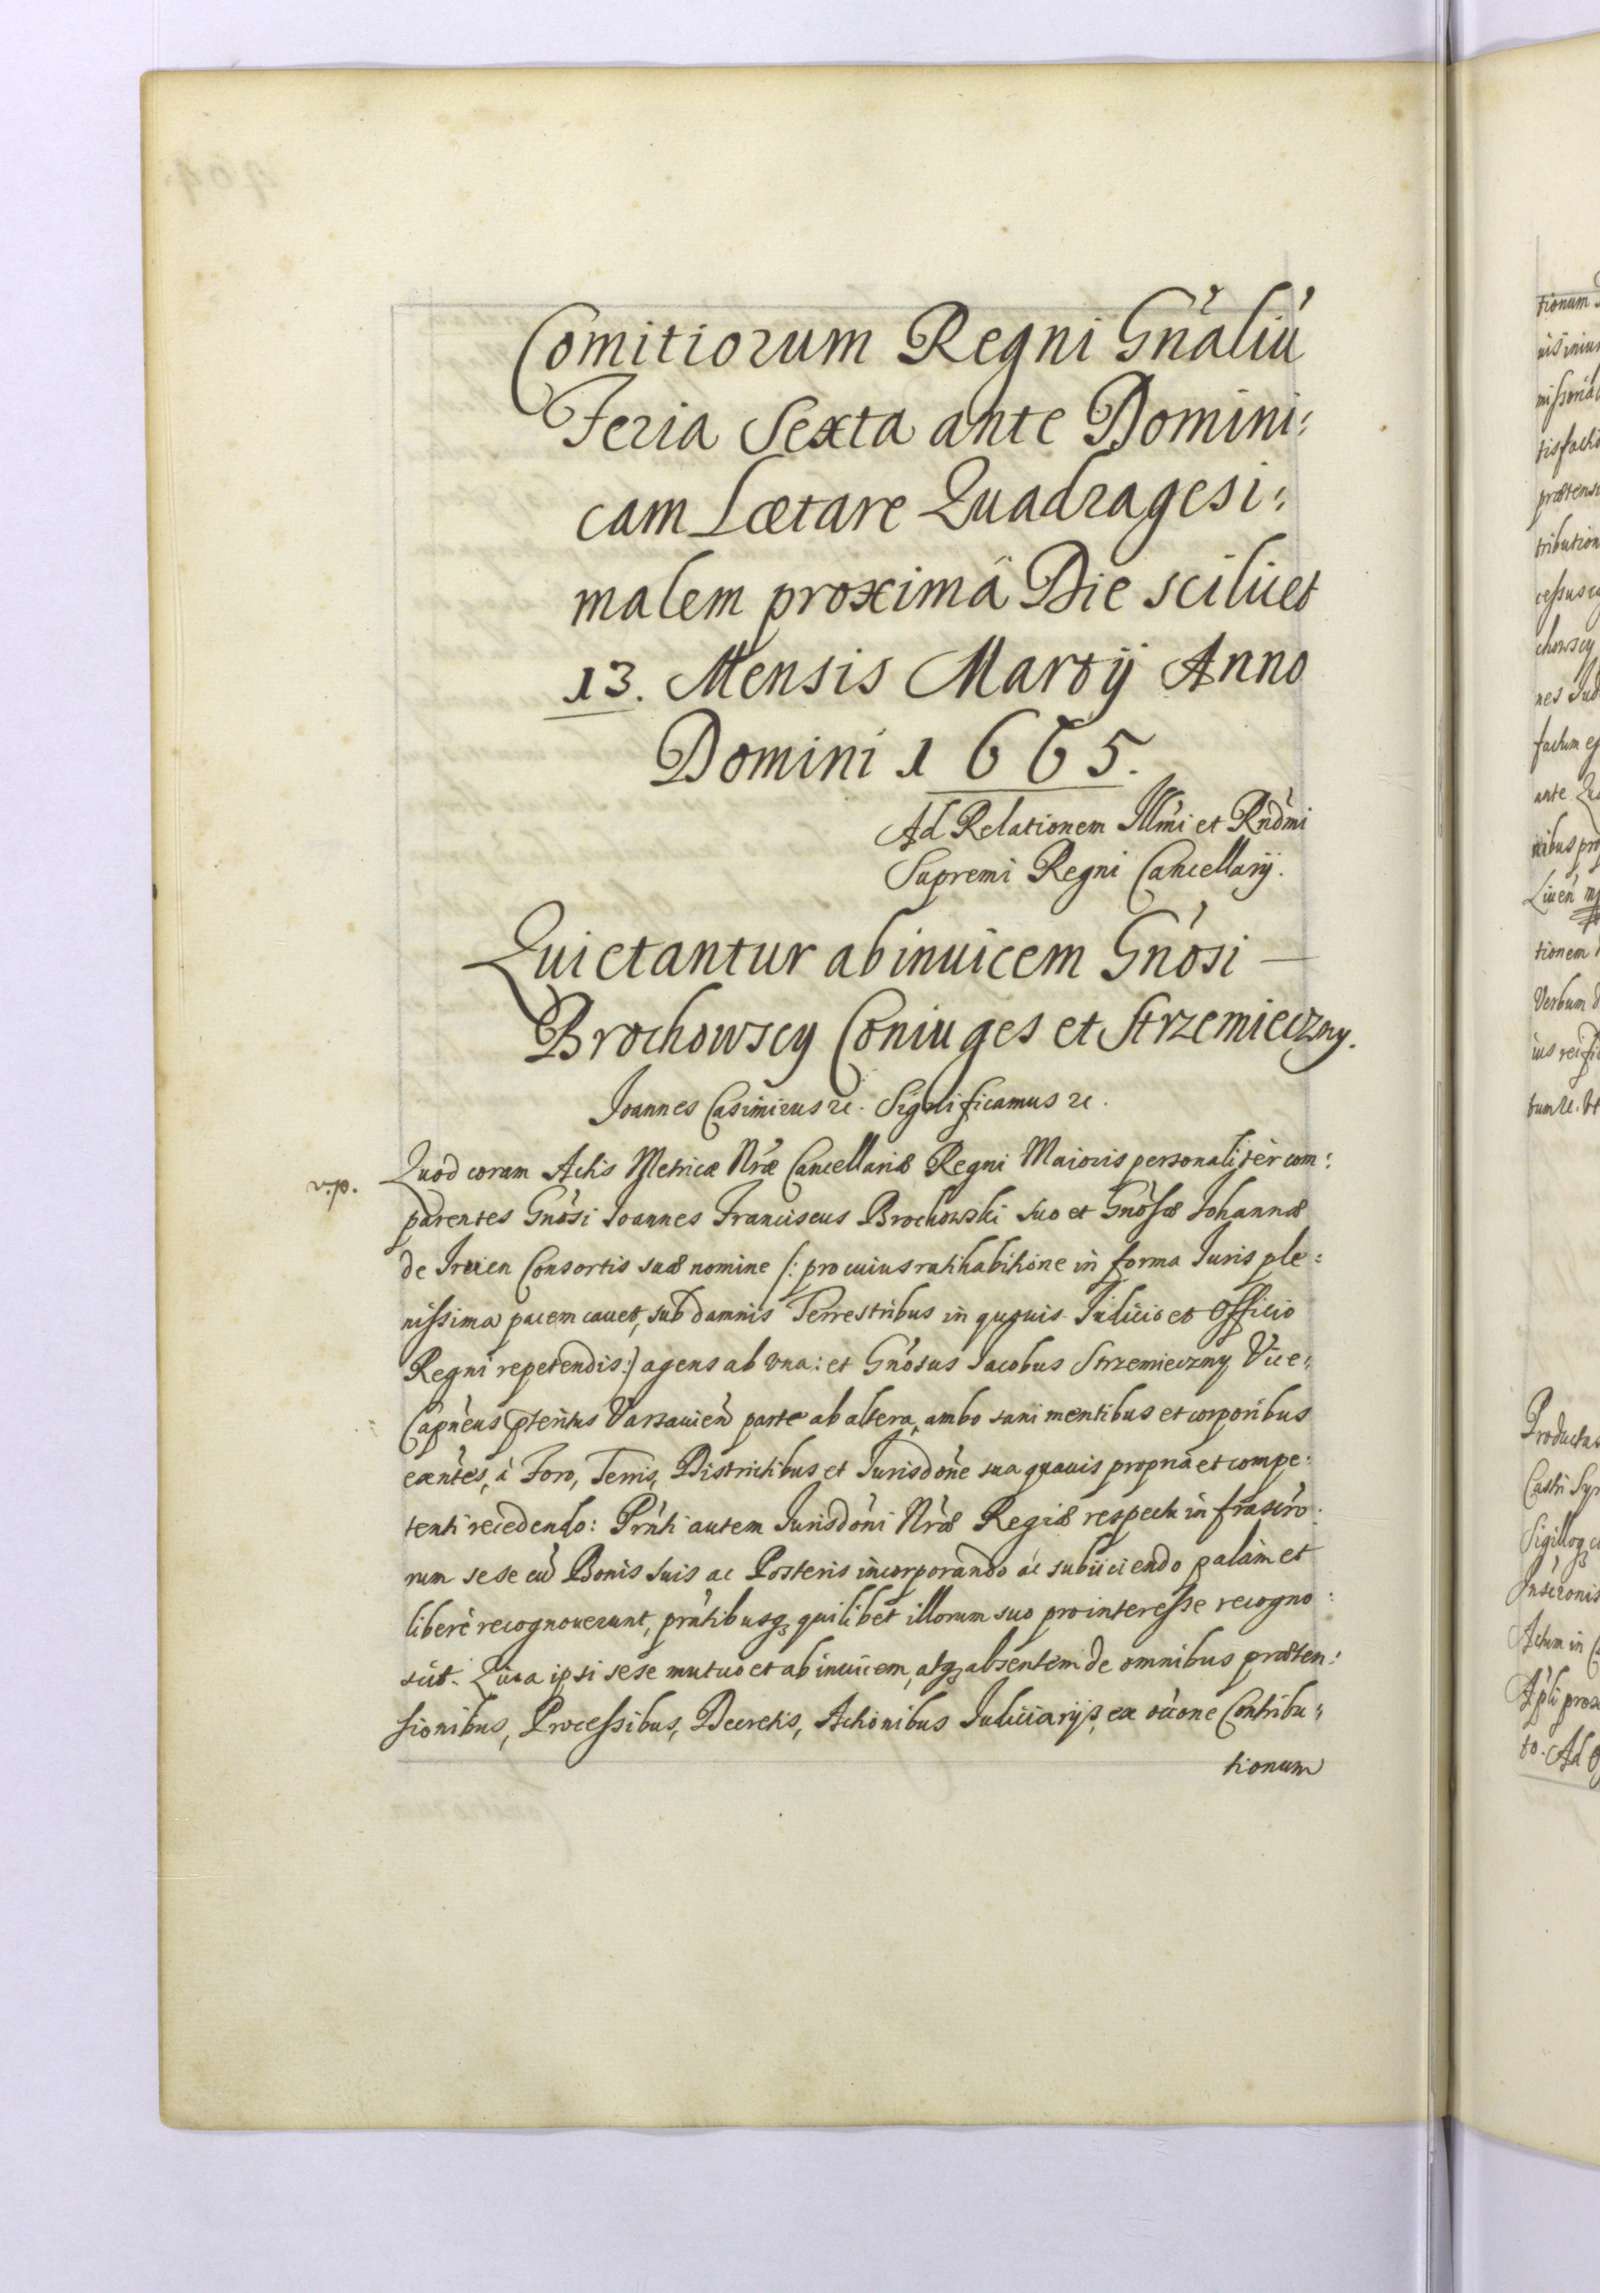 Comitiorum Regni Gnãliũ
Feria Sexta ante Domini:
cam Lætare Quadragesi:
malem proximâ Die scilicet
13. Mensis Martij Anno
Domini 1665.
Ad Relationem Illmi et Rndmi
Supremi Regni Cancellarij.
Quietantur abinuicem Gnosi —
Brochowscy Coniuges et Strzemieczny.
Joannes Casimirus etc. Significamus etc.
Quod coram Actis Metricæ Nræ Cancellariæ Regni Maioris personalitèr com:
v.p.
parentes Gnosi Joannes Franciscus Brochowski suo et Gnosæ Johannæ
de Consortis suæ nomine /: pro cuius ratihabitione in forma Juris ple:
nissima pacem cauet, sub damnis Terrestribus in quouis Judicio et Officio
Regni repetendis:/ agens ab vna: et Gnosus Jacobus Strzemieczny Vice:
Capneus Varsauien parte ab altera, ambo sani mentibus et corporibus
exntes, à Foro, Terris, Districtibus et Jurisdone sua quauis propria et compe:
tenti recedendo: Prnti autem Jurisdoni Nræ Regiæ respectu infrascro:
rum sese cũ Bonis suis ac Posteris incorporando ac subijciendo palàm et
liberè recognouerunt, prntibusq quilibet illorum suo prointeresse recogno:
scũt. Quia ipsi sese mutuo et abinuicem, atq absentem de omnibus præten:
sionibus, Processibus, Decretis, Actionibus Judiciarijs, ex occone Contribu:
tionum